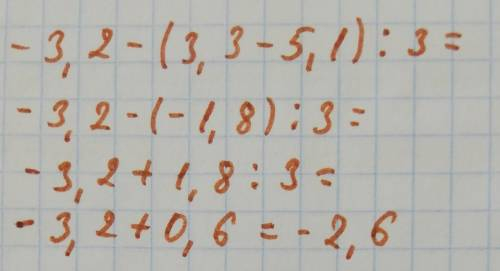 - 3, 2 - (3, 3 - 5, 1) : 3 =
- 3, 2 - (- 1, 8) : 3 =
- 3, 2 + 1, 8 : 3 =
- 3, 2 + 0, 6 = - 2, 6